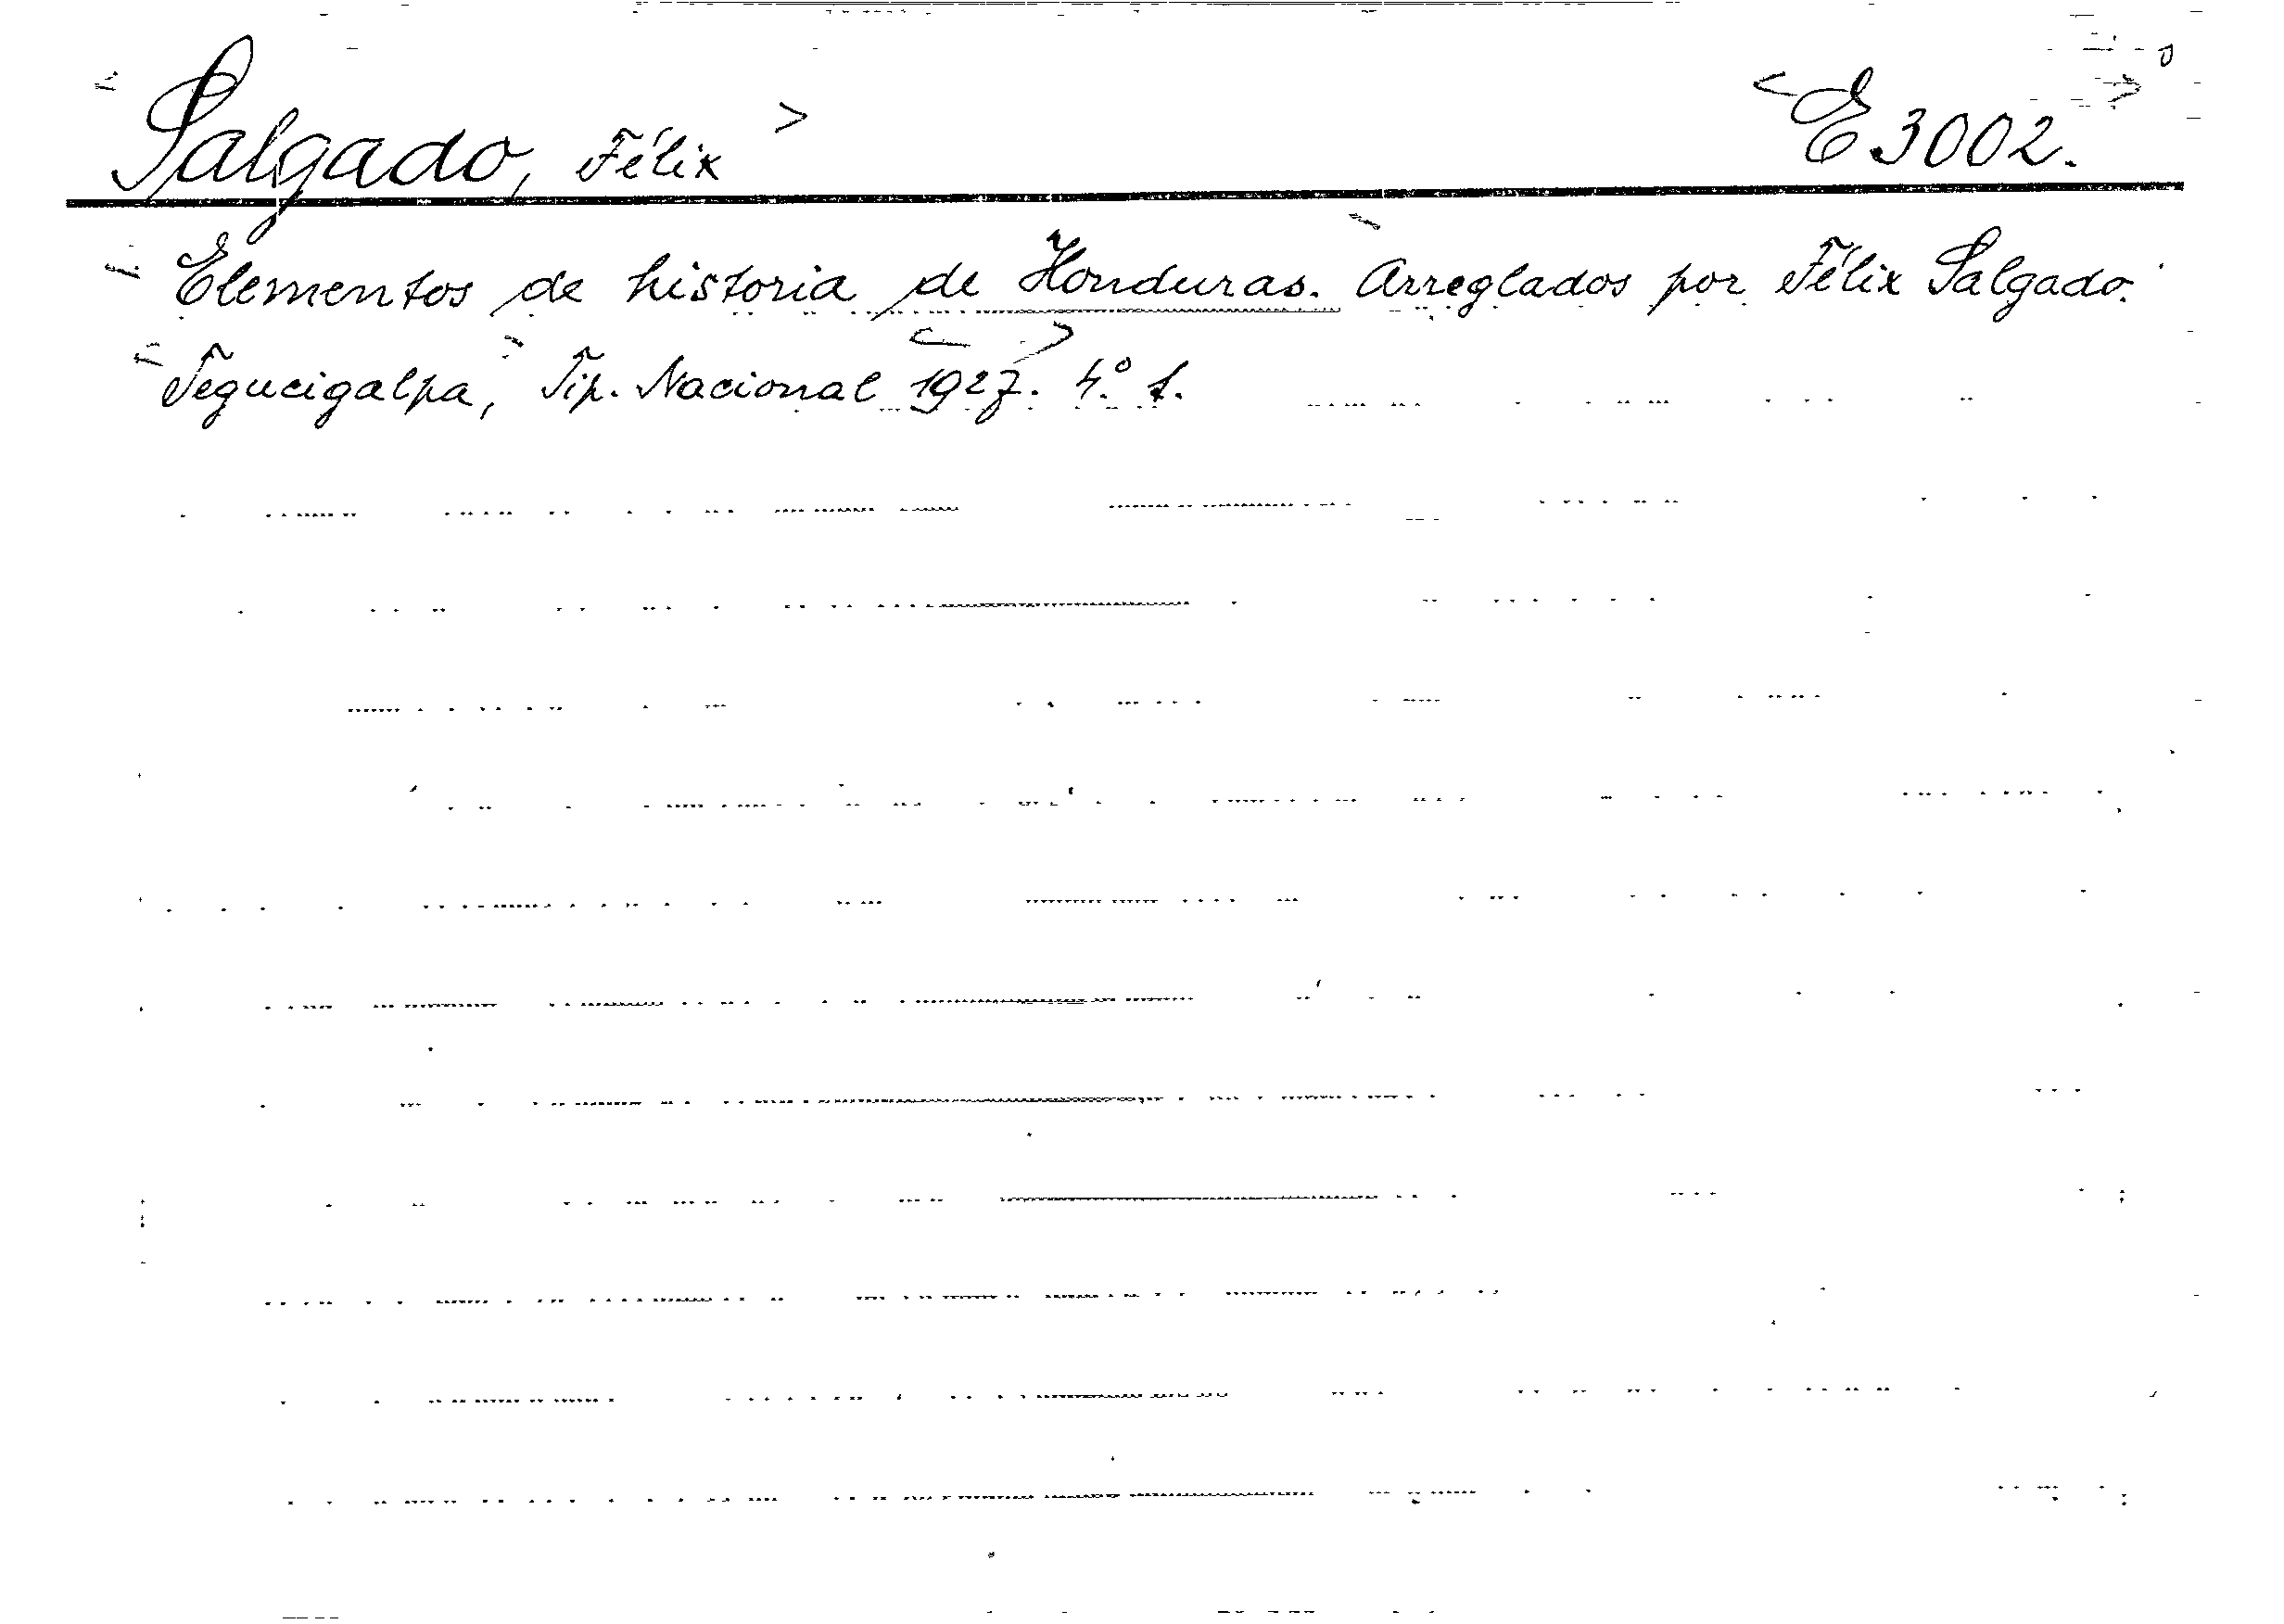 Salgado, Félix
E 3002.
Elementos de historia de Honduras. Arreglados por Félix Salgado.
Tegucigalpa, Tip. Nacional 1927. 4.º